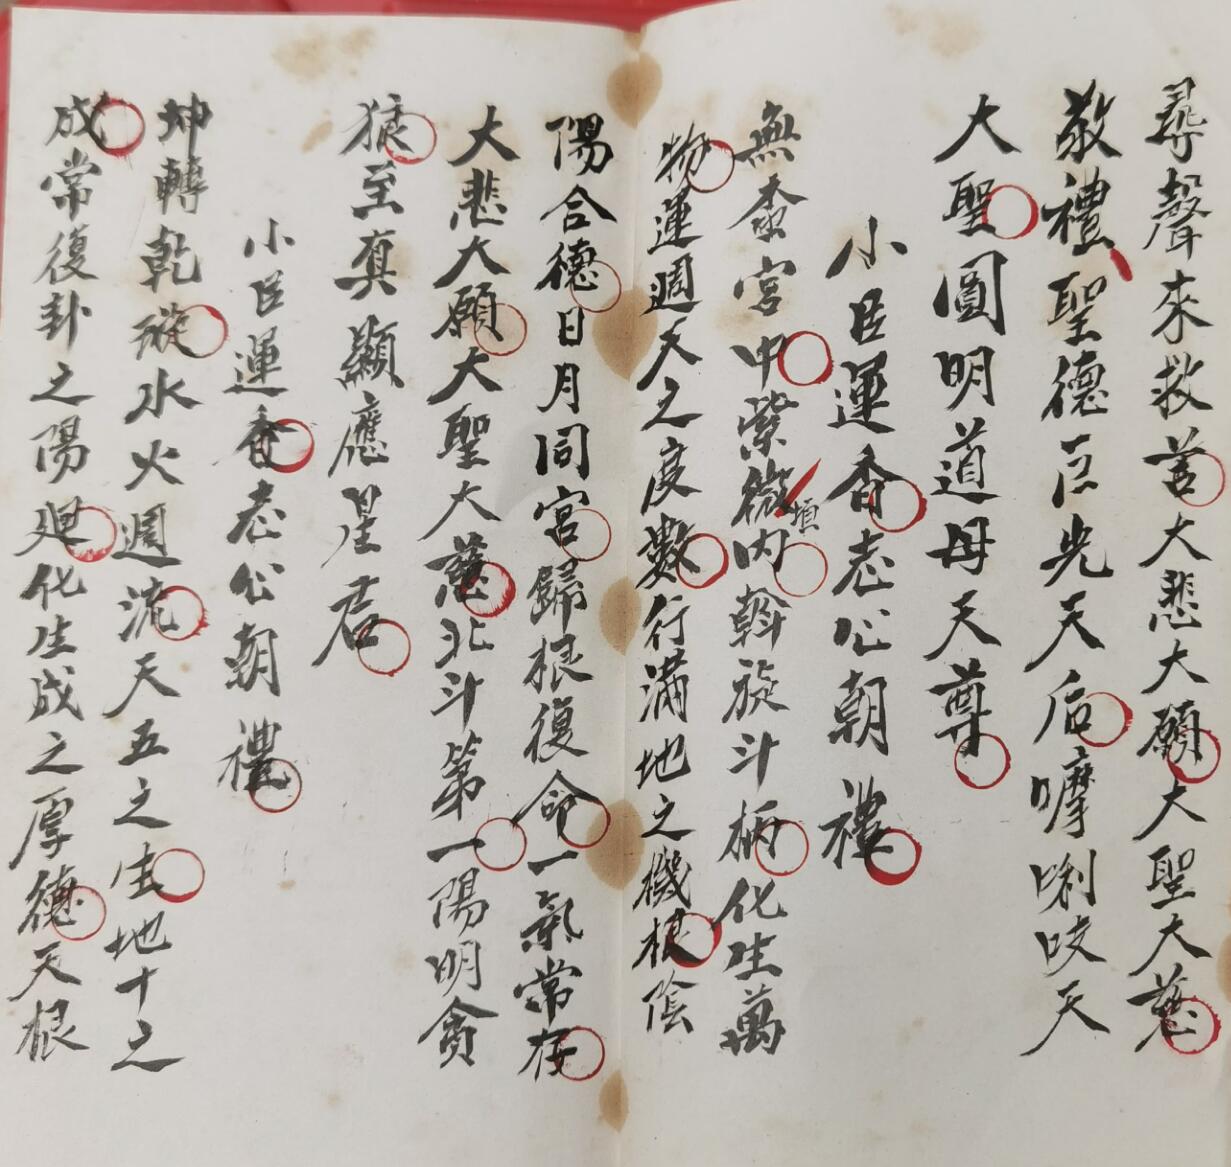 尋聲來救苦大悲大願大聖大慈
敬禮聖德巨光天后嚤唎咬天
大聖圓明道母天尊
小臣運香志心朝禮
無黍宮中紫微垣內斡旋斗柄化生萬
物運週天之度數行滿地之機根陰
陽合德日月同宮歸根復命一氣常存
大悲大願大聖大慈北斗第一陽明貪
狼至真顯應星君
小臣運香志心朝禮
坤轉乾旋水火週流天五之生地十之
成常復卦之陽廻化生成之厚德天根